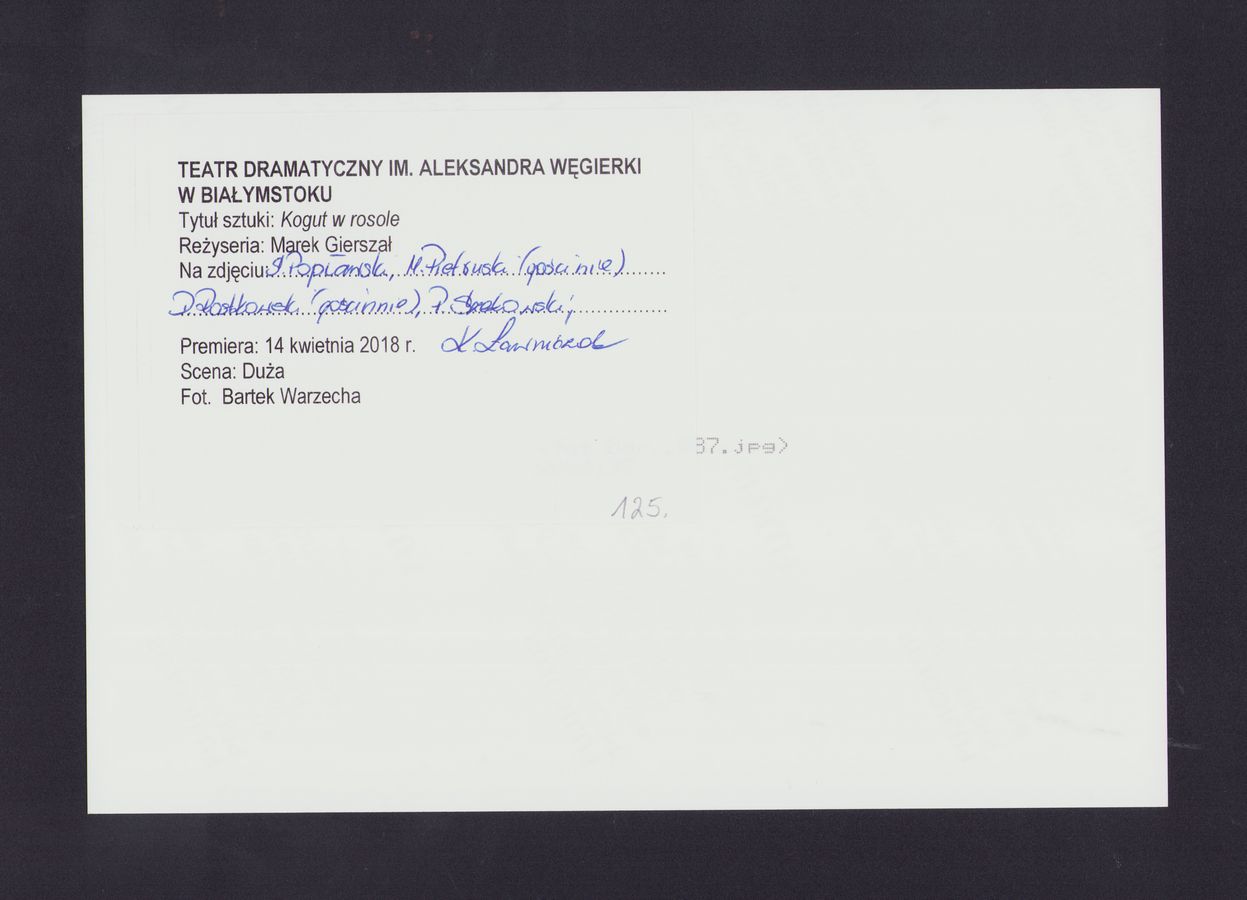 TEATR DRAMATYCZNY IM. ALEKSANDRA WĘGIERKI
W BIAŁYMSTOKU
Tytuł sztuki: Kogut w rosole
Reżyseria: Marek Gierszał
Na zdjęciu: M. Pietruski (gościnnie)
(gościnnie), P.
Premiera: 14 kwietnia 2018 r. K. Ławniczak
Scena: Duża
Fot. Bartek Warzecha
87.jpg)
125.